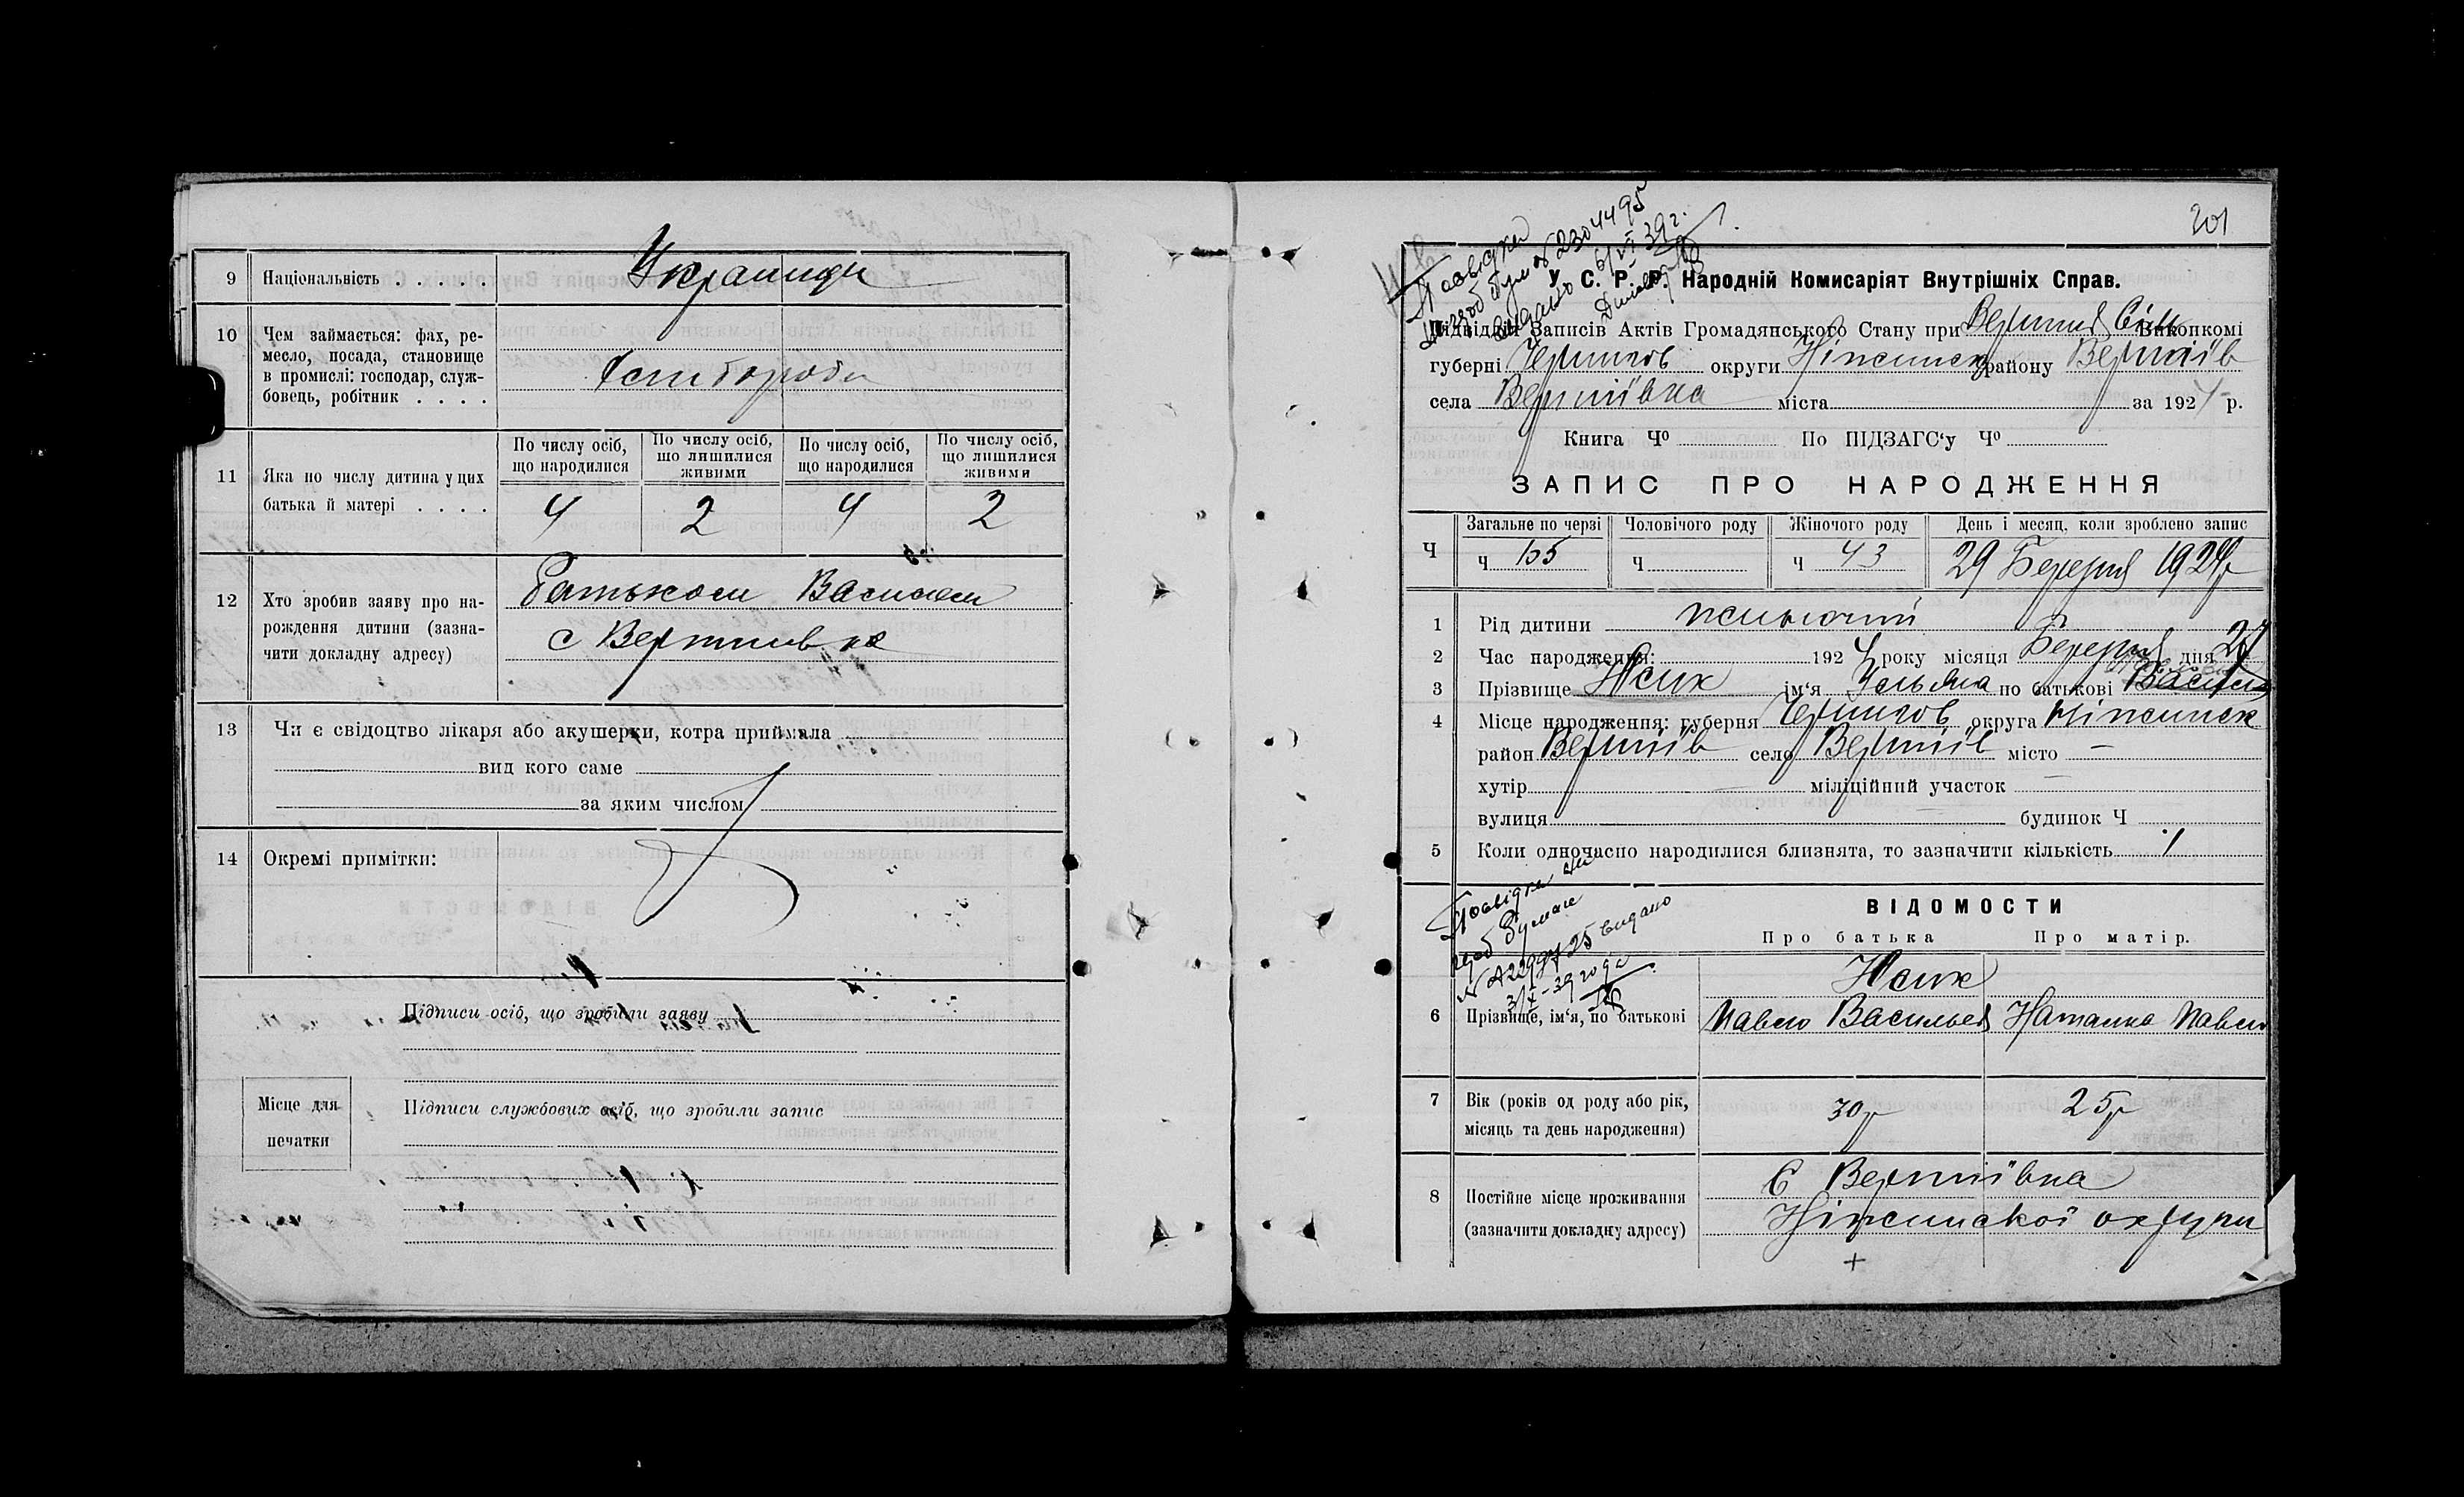 9 Національність . . . . . Украинци
10 Чем займається: фах, ре-
месло, посада, становище
в промислі: господар, служ-
бовець, робітник . . . .
11 Яка по числу дитина у цих
батька й матері . . . .
По числу осіб, що народилися
По числу осіб, що лишилися живими
По числу осіб, що народилися
По числу осіб, що лишилися живими
4 2 4 2
12 Хто зробив заяву про на-
рождення дитини (зазна-
чити докладну адресу)
Батьком Василем
с Вертиивка
13 Чи є свідоцтво лікаря або акушерки, котра приймала
вид кого саме
за яким числом
14 Окремі примітки:
Підписи осіб, що зробили заяву
Місце для
печатки
Підписи службових осіб, що зробили запис
201
Посвідка
видано 6/VI 39 г.
У. С. Р. Р. Народній Комисаріят Внутрішніх Справ.
Підвідділ Записів Актів Громадянського Стану при Вертиів Сіль Виконкомі
губерні Чернигов округи Ніженськ району Вертиїв
села Вертиївка міста за 1924 р.
Книга Чо По ПІДЗАГС‘у Чо
ЗАПИС ПРО НАРОДЖЕННЯ
Ч
Загальне по черзі Чоловічого роду Жіночого роду День і месяц, коли зроблено запис
Ч 155 Ч Ч 43 29 Березня 1924р
1 Рід дитини жіночий
2 Час народження: 1924 року місяця Березня дня 27
3 Прізвище Исик ім‘я Ульяна по батькові
4 Місце народження: губерня Чернигов округа Ніженськ
район Вертиїв село Вертиїв місто —
хутір міліційний участок
вулиця будинок Ч
5 Коли одночасно народилися близнята, то зазначити кількість 1
ВІДОМОСТИ
Про батька Про матір.
Посвідка на
видано
6 Прізвище, ім‘я, по батькові
Исик
Павло Васильев Наталка Павли
7 Вік (років од роду або рік,
місяць та день народження)
30р 25р
8 Постійне місце проживання
(зазначити докладну адресу)
С Вертиївка
Ніженської округи
+